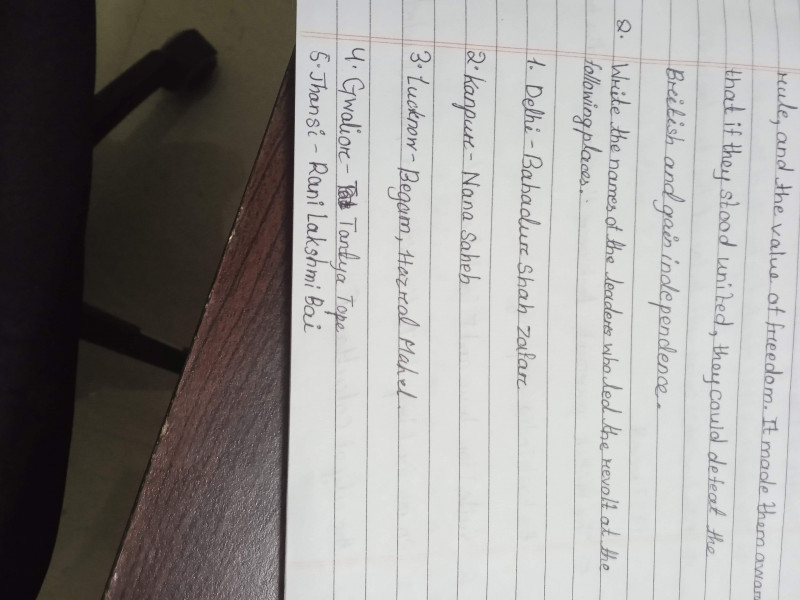 rule, and the value of freedom. It made them awar
that if they stood united, they could defeat the
British and gain independence.
Q. Write the names of the leaders who led the revolt at the
following places.
1. Delhi - Bahadur Shah Zafar
2. Kanpur - Nana Saheb
3. Lucknow - Begam, Hazrat Mahal.
4. Gwalior - Tantya Tope
5. Jhansi - Rani Lakshmi Bai